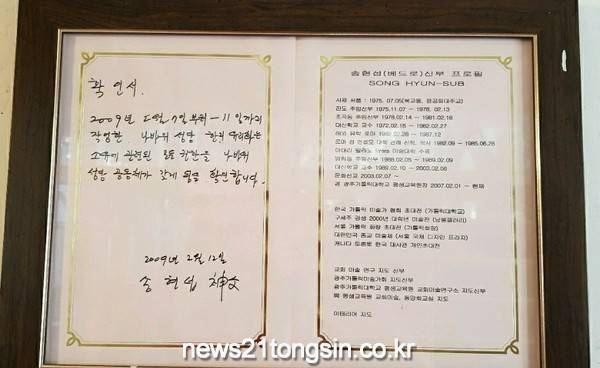 확 인 서.
2009년 5일 7일 부터 ― 11일 까지
작업한 나바위 성당 한지 유리화는
소유에 관련된 모든 권한을 나바위
성당 공동체가 갖게 됨을 확인합니다.
2009년 2월 12일
송 현 섭 神父
송현섭(베드로)신부 프로필
SONG HYUN-SUB
사제 서품 : 1975. 07.05(북교동,
진도 주임신부 1975.11.07 ~ 1978. 02.13
조곡동 주임신부 1978.02.14 ~ 1981.02.18
대신학교 교수 1972.02.16 ~ 1982.02.27
유학 로마
1982.09.28 ~ 1985.06.28
1988.02.05 ~ 1989.02.09
대신학교 교수 1989.02.10 ~ 2003.02.06
문화선교 2003.02.07 ~
現 광주가톨릭대학교 평생교육원장 2007.02.01 ~ 현재
한국 가톨릭 미술가 협회 초대전 (가톨릭대학교)
구세주 강생 2000년 대희년 미술전 (남봉갤러리)
서울 가톨릭 화랑 초대전 (가톨릭화랑)
대한민국 종교 미술제 (서울 국제 디자인 프라자)
캐나다 토론토 한국 대사관 개인초대전
교회 미술 연구 지도 신부
광주가톨릭미술가회 지도신부
광주가톨릭대학교 평생교육원 교회미술연구소 지도신부
現 평생교육원 교회미술, 동양화교실 지도
이태리어 지도
news21tongsin.co.kr